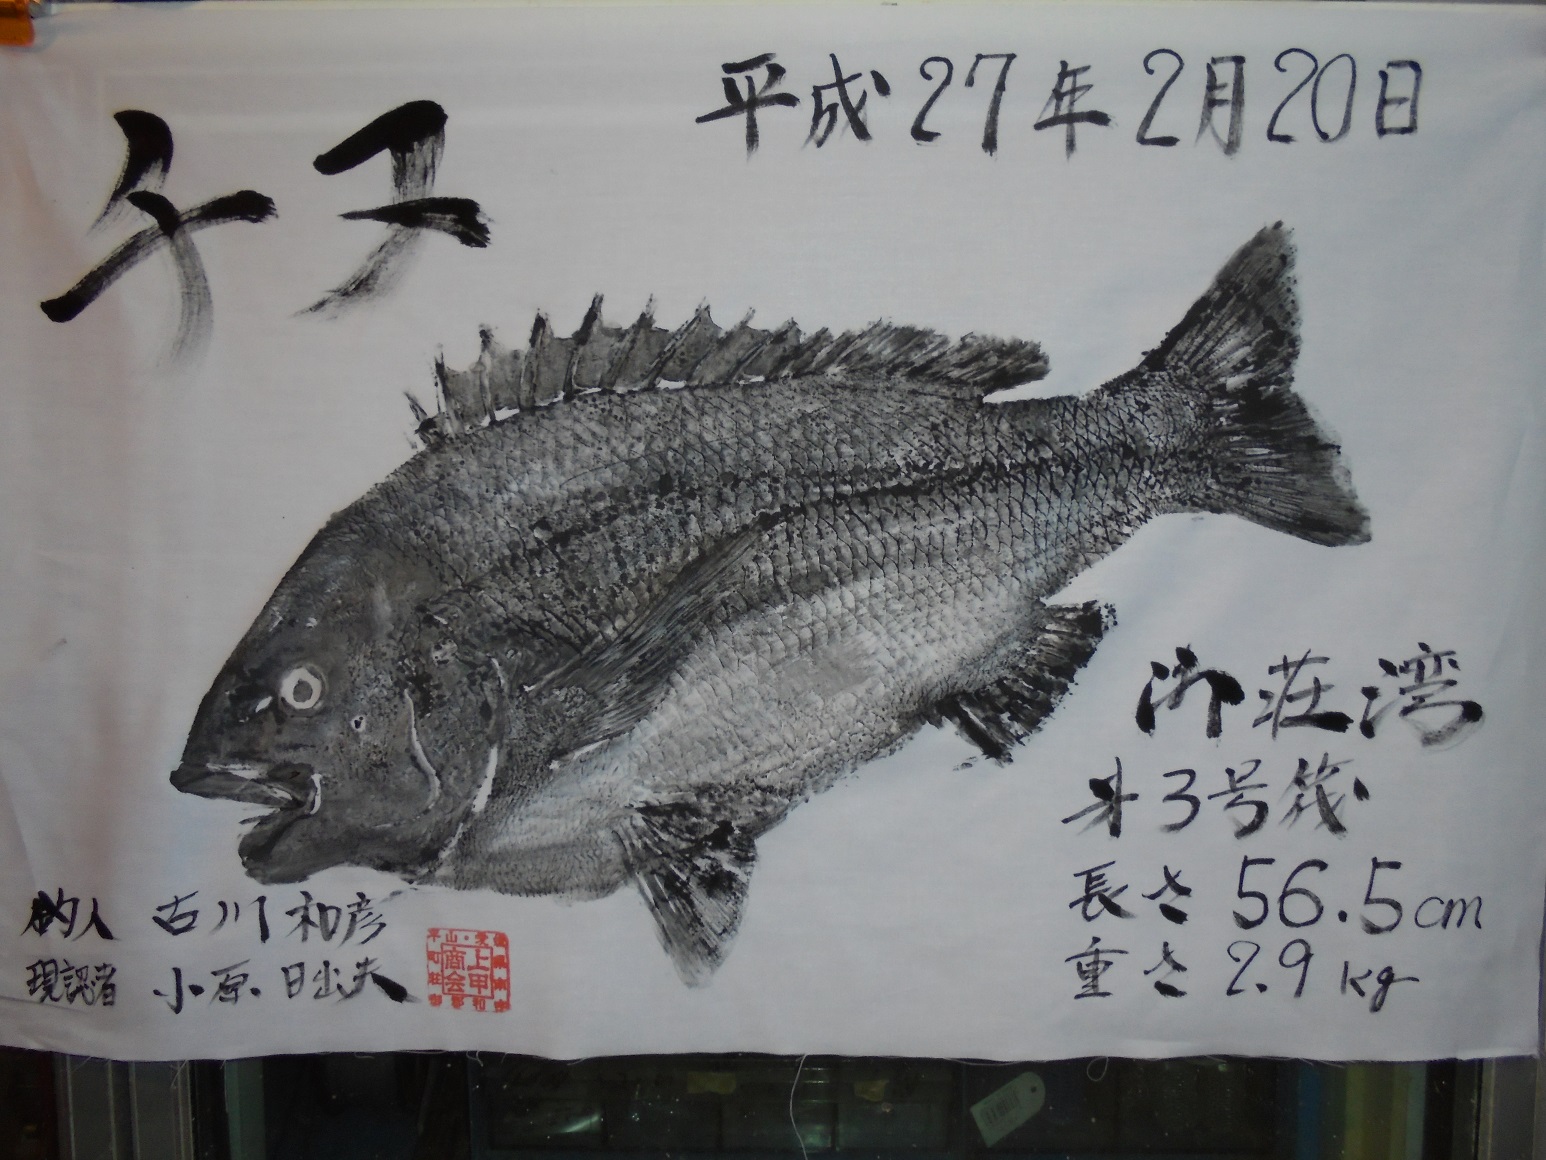 チヌ
平成27年2月20日
御荘湾
才3号筏
長さ 56.5cm
重さ 2.9kg
釣人 古川和彦
現認者 小原日出夫
上甲
商会